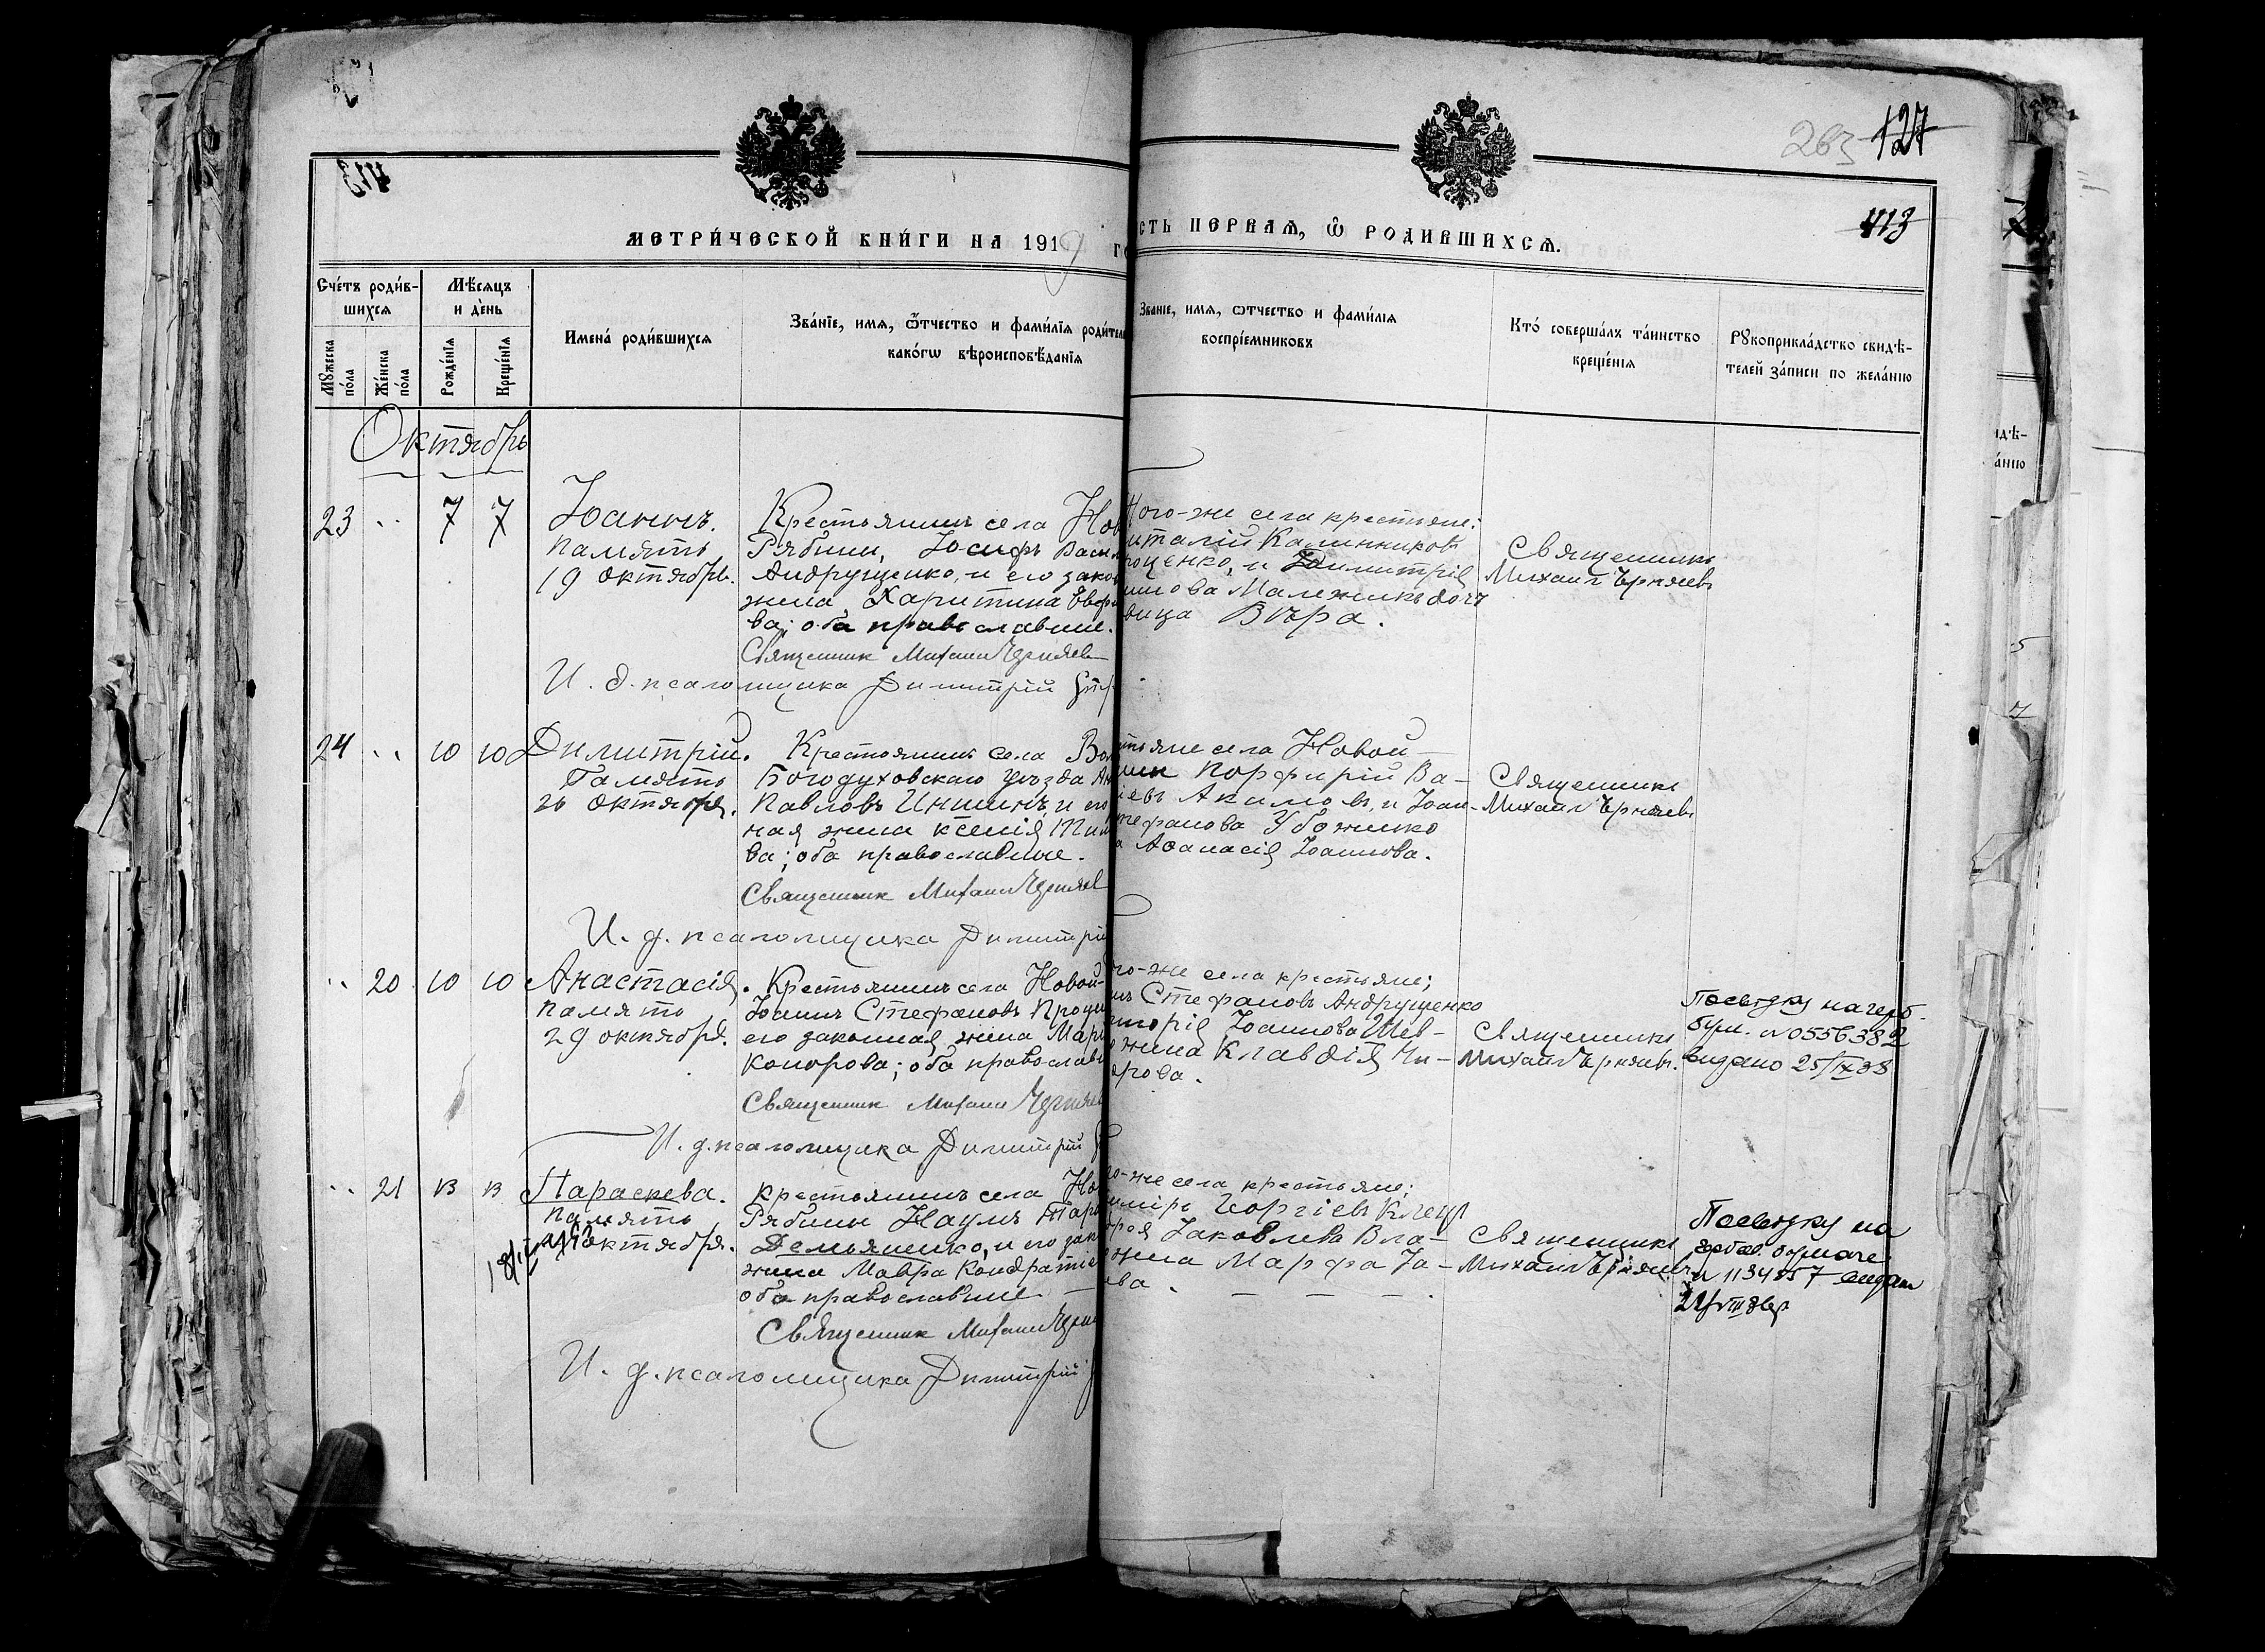 263 127
413
МЕТРИ́ЧЕСКОЙ КНИ́ГИ НА 1919
СТЬ ПЕРВАѦ, Ѡ҆ РОДИВШИХСѦ.
Сче́тъ роди́в-
шихсѧ
Мѣ́сѧцъ
и де́нь
Мꙋжеска
по́ла
Же́нска
по́ла
Рожде́нїѧ
Креще́нїѧ
Имена́ роди́вшихсѧ
Зва́нїе, имѧ, ѻ҆́тчество и фами́лїѧ родите
како́гѡ вѣроисповѣ́данїѧ
Званіе, имѧ, ѡтчество и фами́лїѧ
воспріе́мниковъ
Кто̀ соверша́лъ та́инство
креще́нїѧ
Рꙋкоприкла́дство свидѣ-
телей за́писи по жела́нию
Октябрь
23 " 7 7 Іоаннъ.
память
19 октября.
Крестьянинъ села Нов
Рябины, Іосифъ Васил
Андрущенко, и его закон
жена, Харитина Евфи
ва; оба православные.
Священник Михаил Черняев
И. д. псаломщика Димитрій
того-же села крестьяне:
италій Калинников
оценко, и Димитрія
Малежик дочь
вица Вѣра.
Священникъ
Михаилъ Черняевъ
24 " 10 10 Димитрій.
Память
26 октября.
Крестьянинъ села Во
Богодуховскаго уѣзда
Павловъ Иншинъ, и его
ная жена Ксенія Тим
ва; оба православные.
Священник Михаил Черняев
И. д. псаломщика Димитрій
тьяне села Новой
Порфирій Ва-
іевъ Акимовъ, и Іоан-
тефанова Убоженко
а Аѳанасія Іоаннова.
Священникъ
Михаилъ Черняевъ
" 20 10 10 Анастасія.
память
29 октября.
Крестьянинъ села Новой-
Іоаннъ Стефановъ Проц
его законная жена Мар
Конорова; оба православн
Священник Михаил Черняев
И. д. псаломщика Димитрій
го-же села крестьяне;
нъ Стефановъ Андрущенко
игорія Іоаннова Шев-
жена Клавдія Ни-
арова.
Священникъ
Михаилъ Черняевъ.
Посвідку на герб.
бум. № 0556382
видано 25/IX 38
" 21 13 13 Параскева.
память
октября.
Крестьянинъ села Но
Рябины Наумъ Тара
Демьяненко, и его зак
жена Мавра Кондратіе
оба православные.
Священник Михаил Черн
И. д. псаломщика Димитрій
го-же села крестьяне;
иміръ Георгіевъ Клец
Іаковлева Вла-
жена Марфа Іа-
ва.
Священникъ
Михаилъ Черняевъ
Посвідку на
гербов. бумаге
№ 1134857 видан